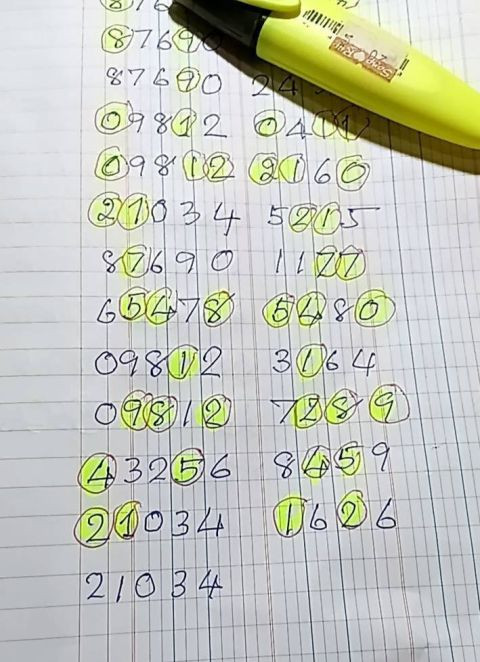 876
87690
87690 24
09812 0411
09812 2160
21034 5215
87690 1177
65478 5480
09812 3164
09812 7289
43256 8459
21034 1626
21034